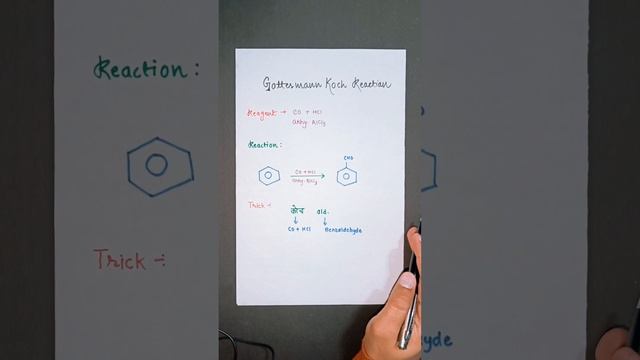 Gottesmann Koch Reaction
Reagent → CO + HCl
Anhy. AlCl3
Reaction:
CO + HCl
Anhy. AlCl3
CHO
Trick ÷ कोच ald.
↓ ↓
CO + HCl Benzaldehyde
Reaction :
Trick ÷
yde